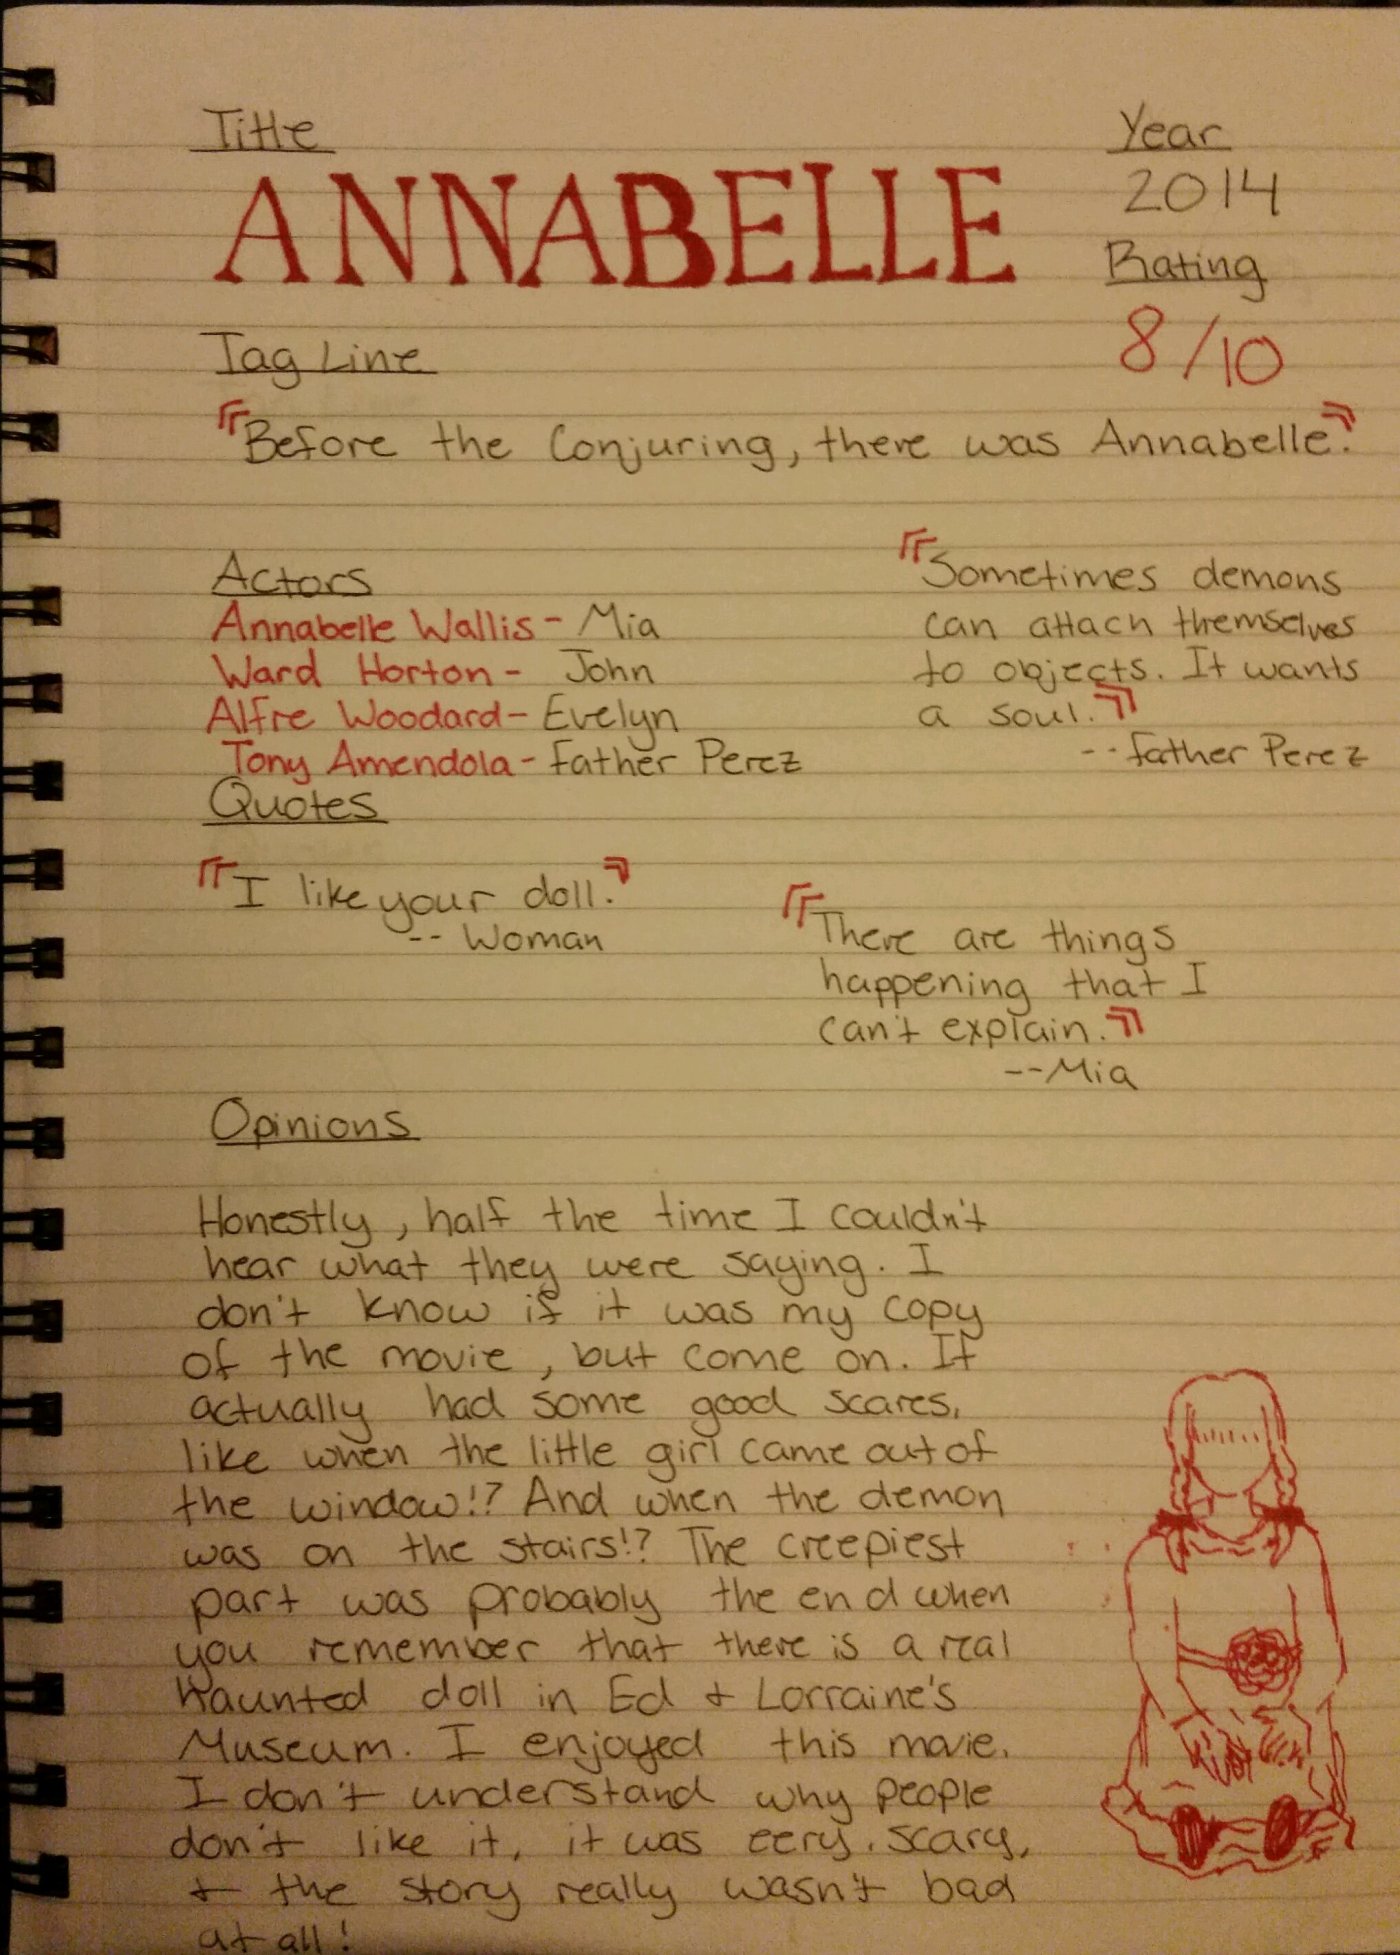 Title
ANNABELLE
Year
2014
Rating
8/10
Tag Line
"Before the Conjuring, there was Annabelle."
Actors
Annabelle Wallis - Mia
Ward Horton - John
Alfre Woodard - Evelyn
Tony Amendola - Father Perez
"Sometimes demons
can attach themselves
to objects. It wants
a soul."
-- Father Perez
Quotes
"I like your doll."
-- Woman
"There are things
happening that I
can't explain."
-- Mia
Opinions
Honestly, half the time I couldn't
hear what they were saying. I
don't know if it was my copy
of the movie, but come on. It
actually had some good scares,
like when the little girl came out of
the window!? And when the demon
was on the stairs!? The creepiest
part was probably the end when
you remember that there is a real
haunted doll in Ed & Lorraine's
Museum. I enjoyed this movie.
I don't understand why people
don't like it, it was eery, scary,
& the story really wasn't bad
at all!